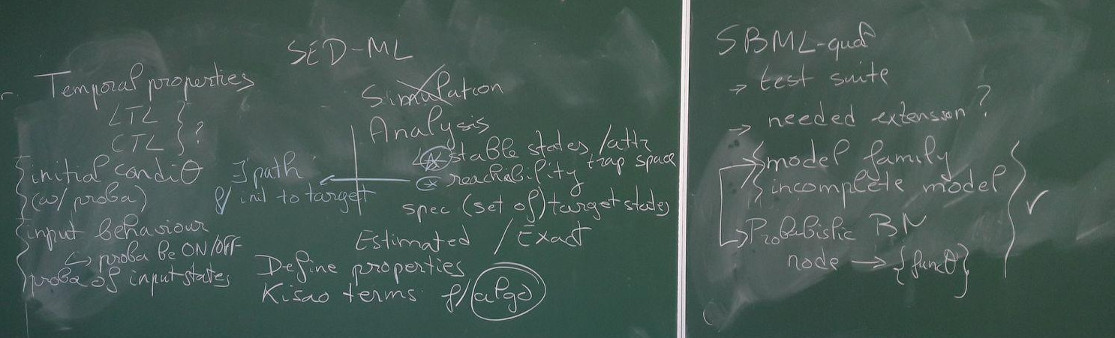 SED-ML
Temporal properties
LTL
CTL } ?
initial condit°
(w/ proba)
input behaviour
↳ proba be ON/OFF
proba of input states
∃ path
f/ init to target
Simulation
Analysis
stable states /attr
trap space
reachability
spec (set of) target states
Estimated / Exact
Define properties
Kisao terms f/ algo
SBML-qual
→ test suite
→ needed extension ?
→ model family
incomplete model
→ Probabilistic BN
node → {funct°}